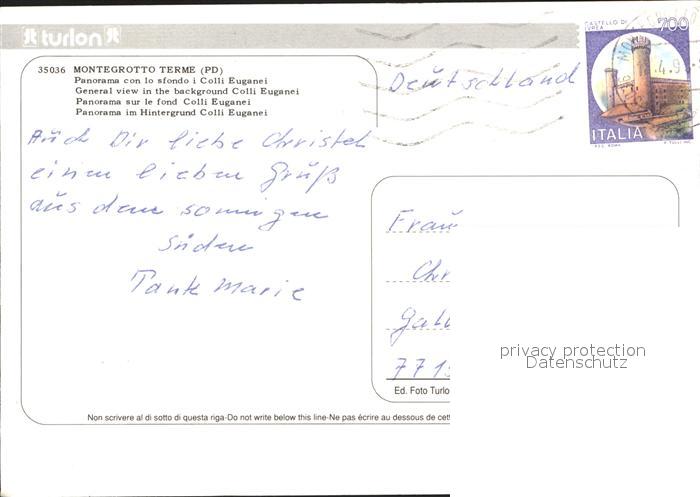 turlon
35036 MONTEGROTTO TERME (PD)
Panorama con lo sfondo i Colli Euganei
General view in the background Colli Euganei
Panorama sur le fond Colli Euganei
Panorama im Hintergrund Colli Euganei
CASTELLO DI IVREA
700
ITALIA
Deutschland
Auch Dir liebe Christel
einen lieben Gruß
aus dem sonnigen
Süden
Tante Marie
Frau
Chr
771
privacy protection
Datenschutz
Ed. Foto Turlo
Non scrivere al di sotto di questa riga-Do not write below this line-Ne pas écrire au dessous de cett